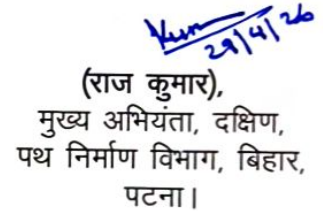 29/4/26
(राज कुमार),
मुख्य अभियंता, दक्षिण,
पथ निर्माण विभाग, बिहार,
पटना।